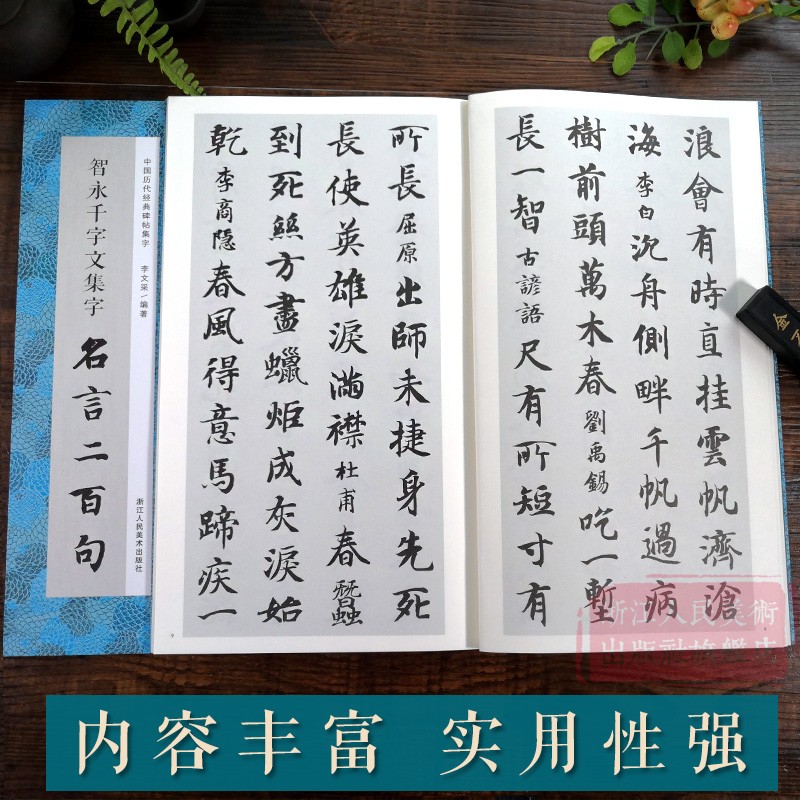 浪會有時直挂雲帆濟滄
海李白沉舟側畔千帆過病
樹前頭萬木春劉禹錫吃一塹
長一智古諺語尺有所短寸有
所長屈原出師未捷身先死
長使英雄淚滿襟杜甫春蠶
到死絲方盡蠟炬成灰淚始
乾李商隱春風得意馬蹄疾一
9
中国历代经典碑帖集字 李文采/编著
智永千字文集字
名言二百句
浙江人民美术出版社
金
浙江人民美術
出版社旗艦店
内容丰富 实用性强